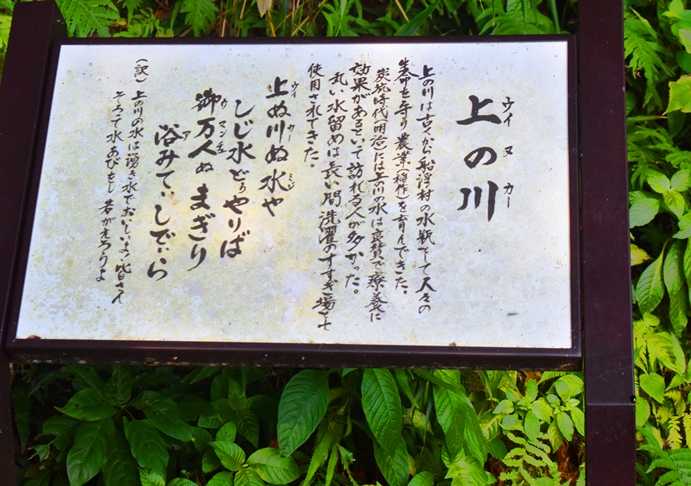 上の川
ウイヌカー
上の川は古くから船浮村の水瓶として人々の
生命を守り農業(稲作)を育んできた。
炭坑時代(明治)には上の川の水は良質で療養に
効果があるといって訪れる人が多かった。
丸い水留めは長い間洗濯のすすぎ場として
使用されてきた。
上ぬ川ぬ水や
しじ水どぅやりば
御万人ぬまぎり
浴みてぃしでぃら
(訳)上の川の水は湧き水でおいしいよ皆さん
そろって水あびをし若がえろうよ